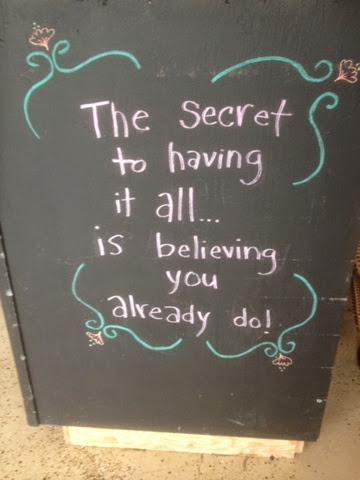 The Secret
to having
it all...
is believing
you
already do!